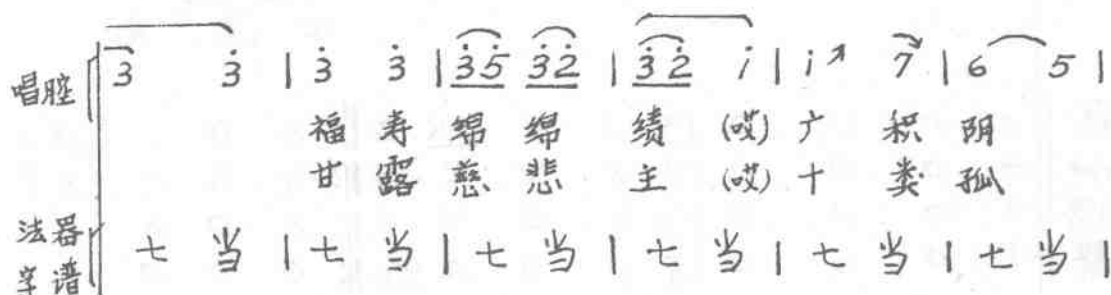 唱腔 3̇ 3̇ | 3̇ 3̇ | 3̇5̇ 3̇2̇ | 3̇2̇ i | i↗ 7 | 6 5 |
福 寿 绵 绵 绩 (哎) 广 积 阴
甘 露 慈 悲 主 (哎) 十 类 孤
法器字谱 七 当 | 七 当 | 七 当 | 七 当 | 七 当 | 七 当 |